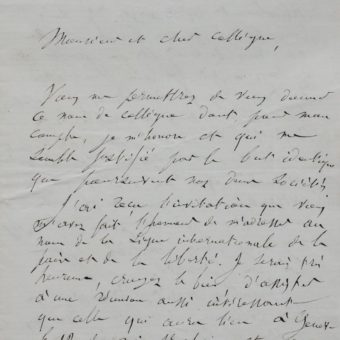 Monsieur et cher collègue,
Vous me permettrez de vous donner
ce nom de collègue dont, pour mon
compte, je m'honore et qui me
semble justifié par le but identique
que poursuivent nos deux Sociétés
J'ai reçu l'invitation que vous
m'avez fait l'honneur de m'adresser au
nom de la Ligue internationale de la
paix et de la liberté. Je serais très
heureux, croyez le bien, d'assister
à une réunion aussi intéressante
que celle qui aura lieu à Genève